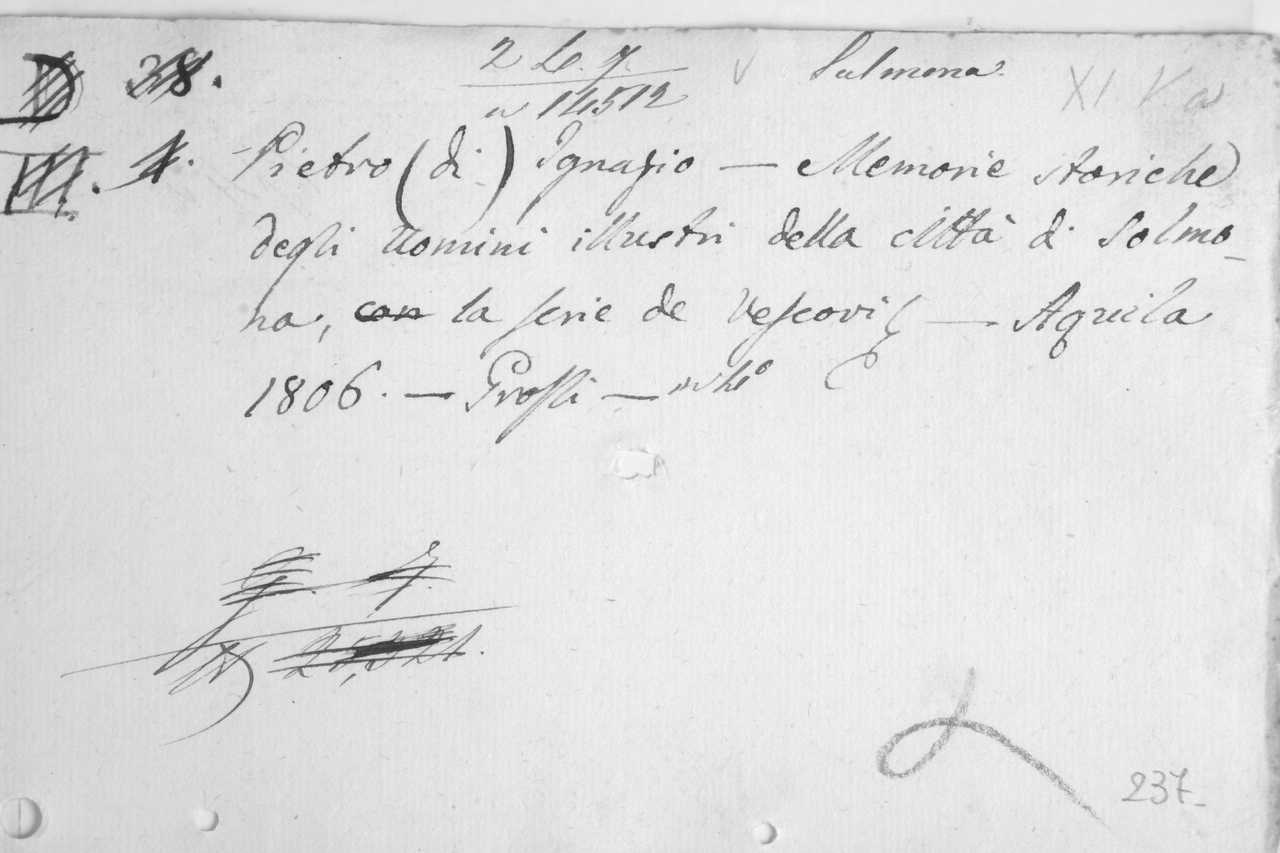 D 28. 2 L. 7. Sulmona. XI V a
a 14512
III. 4. Pietro (di) Ignazio — Memorie storiche
degli Uomini illustri della città di Solmo-
na, con la serie de Vescovi — Aquila
1806. — Grossi — in 4º
237